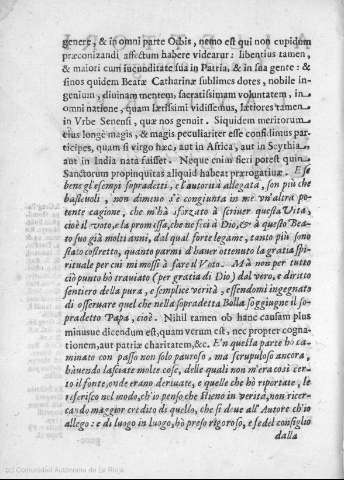 genere, & in omni parte Orbis, nemo est qui non cupidum
præconizandi affectum habere videatur: libentius tamen,
& maiori cum iucunditate sua in Patria, & in sua gente: &
sinos quidem Beatæ Catharinæ sublimes dotes, nobile in-
genium, diuinam mentem, sacratissimam voluntatem, in
omni natione, quam lætissimi vidissemus, lætiores tamen
in Vrbe Senensi, quæ nos genuit. Siquidem meritorum
eius longè magis, & magis peculiariter esse confisimus par-
ticipes, quam si virgo hæc, aut in Africa, aut in Scythia
aut in India nata fuisset. Neque enim fieri potest quin
Sanctorum propinquitas aliquid habeat prærogatiuæ. E se
bene gl'esempi sopradetti, e l'autorità allegata, son più che
basteuoli, non dimeno s'è congiunta in me vn'altra po-
tente cagione, che m'hà sforzato à scriuer questa Vita,
cioè il voto, e la promessa, che ne feci à Dio, & à questo Bea-
to suo già molti anni, dal qual forte legame, tanto più sono
stato costretto, quanto parmi d'hauer ottenuto la gratia spi-
rituale per cui mi mossi à fare il Voto. Mà non per tutto
ciò punto hò trauiato (per gratia di Dio) dal vero, e diritto
sentiero della pura, e semplice verità, essendomi ingegnato
di osseruare quel che nella sopradetta Bolla soggiugne il so-
pradetto Papa, cioè. Nihil tamen ob hanc causam plus
minusue dicendum est, quam verum est, nec propter cogna-
tionem, aut patriæ charitatem, &c. E'n quella parte hò ca-
minato con passo non solo pauroso, ma scrupuloso ancora,
hauendo lasciate molte cose, delle quali non m'era così cer-
to il fonte, onde erano deriuate, e quelle che hò riportate, le
referisco nel modo, ch'io penso che stieno in verità, non ricer-
cando maggior credito di quello, che si deue all'Autore ch'io
allego: e di luogo in luogo, hò preso rigoroso, e fedel consiglio
dalla
(c) Comunidad Autónoma de La Rioja